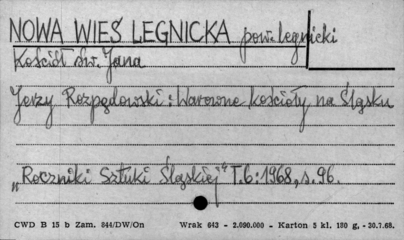 NOWA WIEŚ LEGNICKA pow. legnicki
Kościół św. Jana
Jerzy Rozpędowski: Warowne kościoły na Śląsku
„Roczniki Sztuki Śląskiej" T.6:1968, s. 96.
CWD B 15 b Zam. 844/DW/On Wrak 643 - 2.090.000 - Karton 5 kl. 180 g, - 30.7.68.